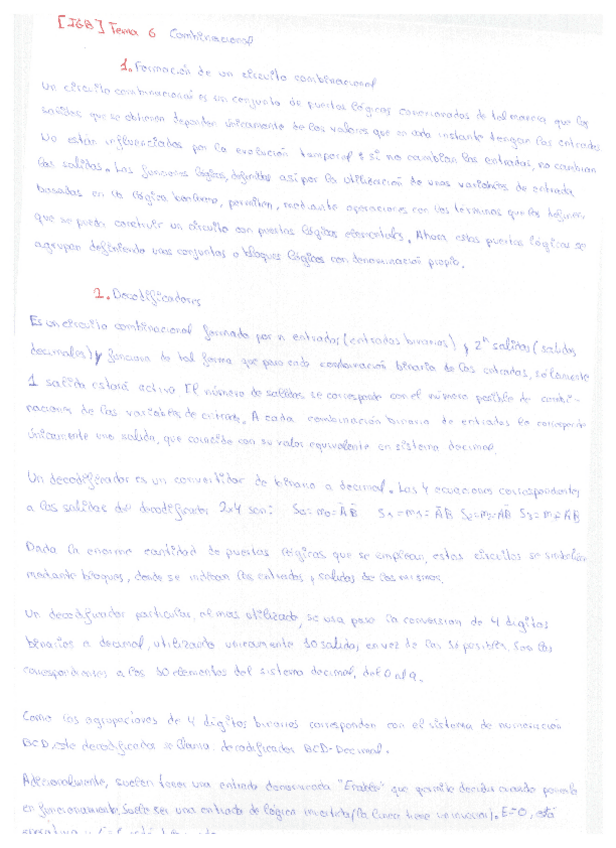 [I6B] Tema 6 Combinacional
1. Formación de un circuito combinacional
Un circuito combinacional es un conjunto de puertas lógicas conexionadas de tal manera que las
salidas que se obtienen dependen únicamente de los valores que en cada instante tengan las entradas
No están influenciados por la evolución temporal: si no cambian las entradas, no cambian
las salidas. Las funciones lógicas, definidas así por la utilización de unas variables de entrada
basadas en la lógica booleana, permiten, mediante operaciones con los términos que las definen
que se pueda construir un circuito con puertas lógicas elementales. Ahora, estas puertas lógicas se
agrupan definiendo unos conjuntos o bloques lógicos con denominación propia.
1. Decodificadores
Es un circuito combinacional formado por n entradas (entradas binarias) y 2ⁿ salidas (salidas
decimales) y funciona de tal forma que para cada combinación binaria de las entradas, solamente
1 salida estará activa. El número de salidas se corresponde con el número posible de combi-
naciones de las variables de entrada. A cada combinación binaria de entradas le corresponde
únicamente una salida, que coincide con su valor equivalente en sistema decimal.
Un decodificador es un convertidor de binario a decimal. Las 4 ecuaciones correspondientes
a las salidas del decodificador 2x4 son:
Dada la enorme cantidad de puertas lógicas que se emplean, estos circuitos se simbolizan
mediante bloques, donde se indican las entradas y salidas de los mismos.
Un decodificador particular, el mas utilizado, se usa para la conversion de 4 digitos
binarios a decimal, utilizando unicamente 10 salidas en vez de las 16 posibles. Son las
correspondientes a los 10 elementos del sistema decimal, del 0 al 9.
Como las agrupaciones de 4 digitos binarios corresponden con el sistema de numeración
BCD, este decodificador se llama: decodificador BCD-Decimal.
Adicionalmente, suelen tener una entrada denominada "Enable" que permite decidir cuando ponerlo
en funcionamiento. Suele ser una entrada de lógica invertida (la línea tiene un inversor). E=0, está